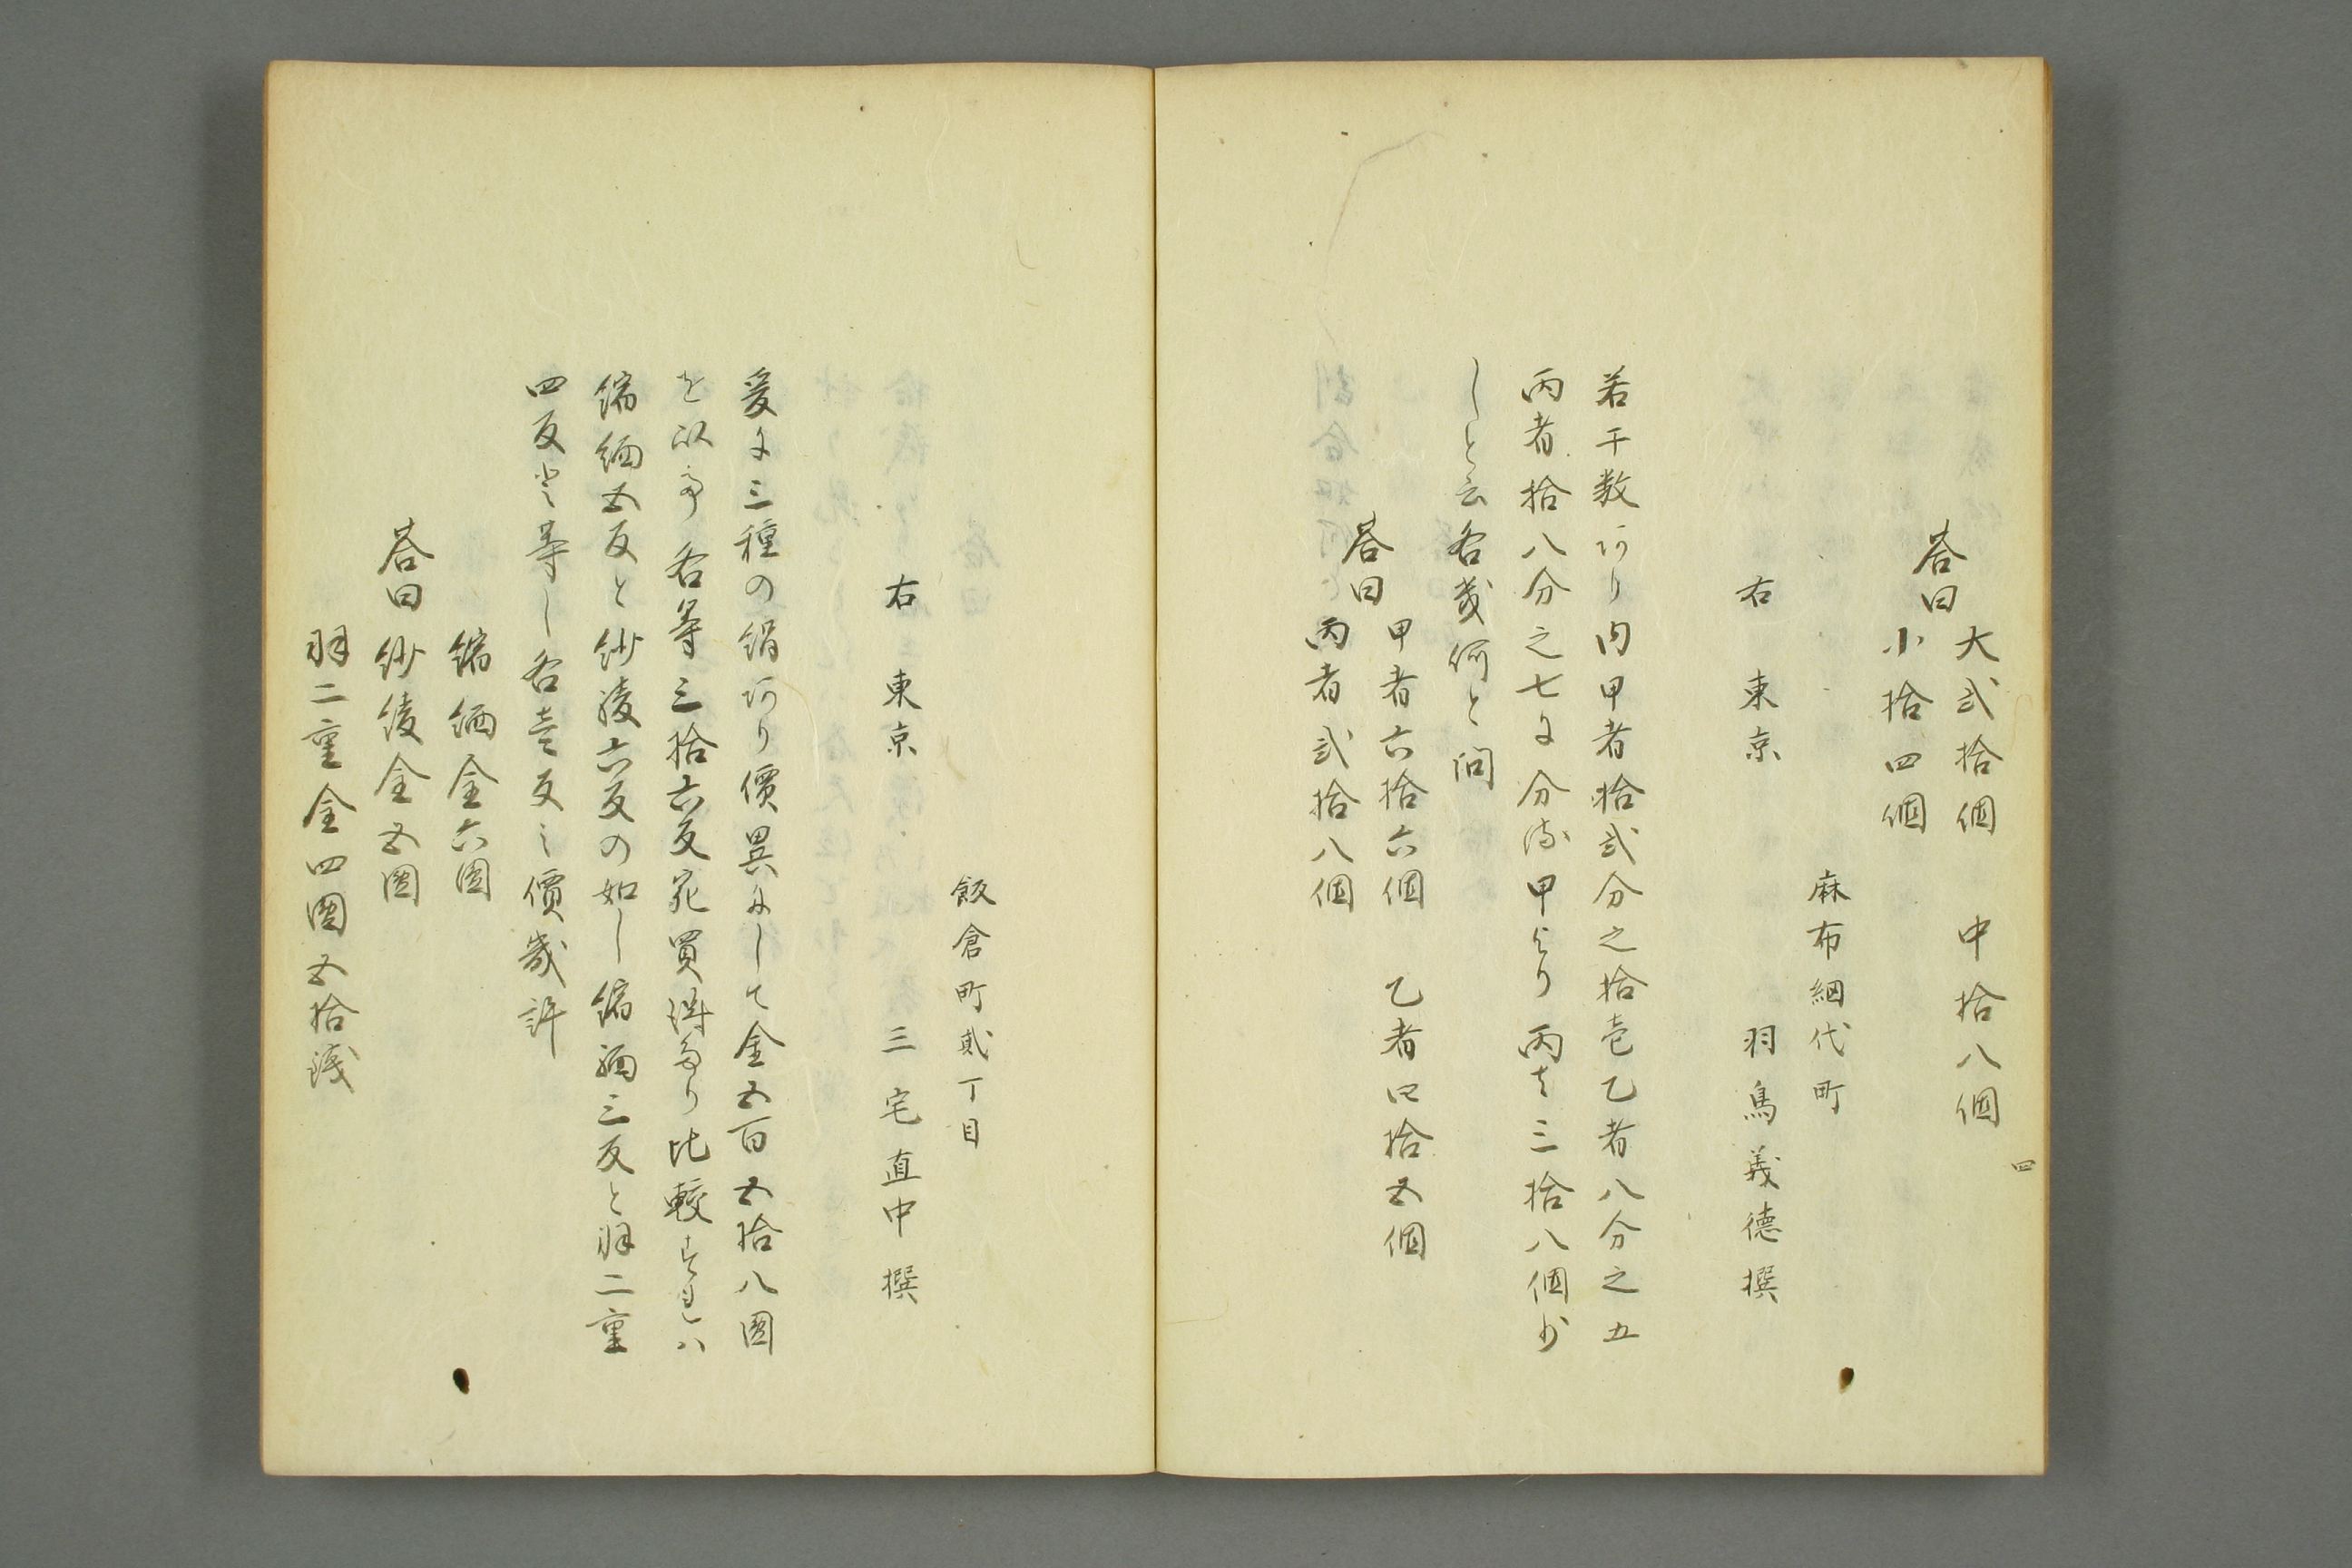 大弐拾個　中拾八個
答曰
小拾四個
麻布網代町
右　東京　羽鳥義徳撰
若干数あり内甲者拾弐分之拾壱乙者八分之五
丙者拾八分之七に分る甲より丙者三拾八個少
しと云各幾何と問
甲者六拾六個　乙者四拾五個
答曰
丙者弐拾八個
四
飯倉町貳丁目
右　東京　三宅直中撰
爰に三種の絹あり價異にして金五百五拾八圓
を以て各等三拾六反宛買得たり比較すれハ
縮緬五反と紗綾六反の如し縮緬三反と羽二重
四反と等し各壱反之價幾許
縮緬金六圓
答曰　紗綾金五圓
羽二重金四圓五拾銭